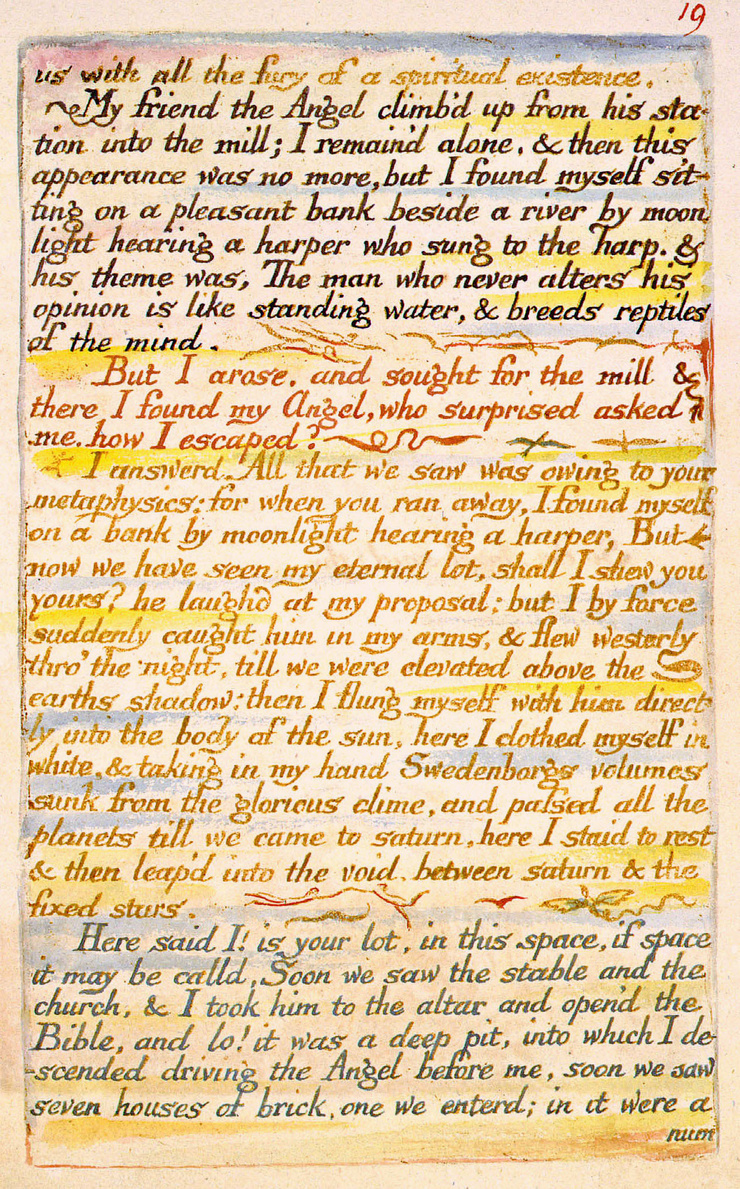 19
us with all the fury of a spiritual existence.
My friend the Angel climb'd up from his sta-
tion into the mill; I remain'd alone, & then this
appearance was no more, but I found myself sit-
ting on a pleasant bank beside a river by moon
light hearing a harper who sung to the harp. &
his theme was, The man who never alters his
opinion is like standing water, & breeds reptiles
of the mind.
But I arose, and sought for the mill &
there I found my Angel, who surprised asked
me, how I escaped?
I answerd. All that we saw was owing to your
metaphysics: for when you ran away, I found myself
on a bank by moonlight hearing a harper, But
now we have seen my eternal lot, shall I shew you
yours? he laughd at my proposal: but I by force
suddenly caught him in my arms, & flew westerly
thro' the night, till we were elevated above the
earths shadow: then I flung myself with him direct-
ly into the body of the sun, here I clothed myself in
white, & taking in my hand Swedenborgs volumes
sunk from the glorious clime, and passed all the
planets till we came to saturn, here I staid to rest
& then leap'd into the void, between saturn & the
fixed stars.
Here said I! is your lot, in this space, if space
it may be calld, Soon we saw the stable and the
church, & I took him to the altar and open'd the
Bible, and lo! it was a deep pit, into which I de-
-scended driving the Angel before me, soon we saw
seven houses of brick, one we enterd; in it were a
num